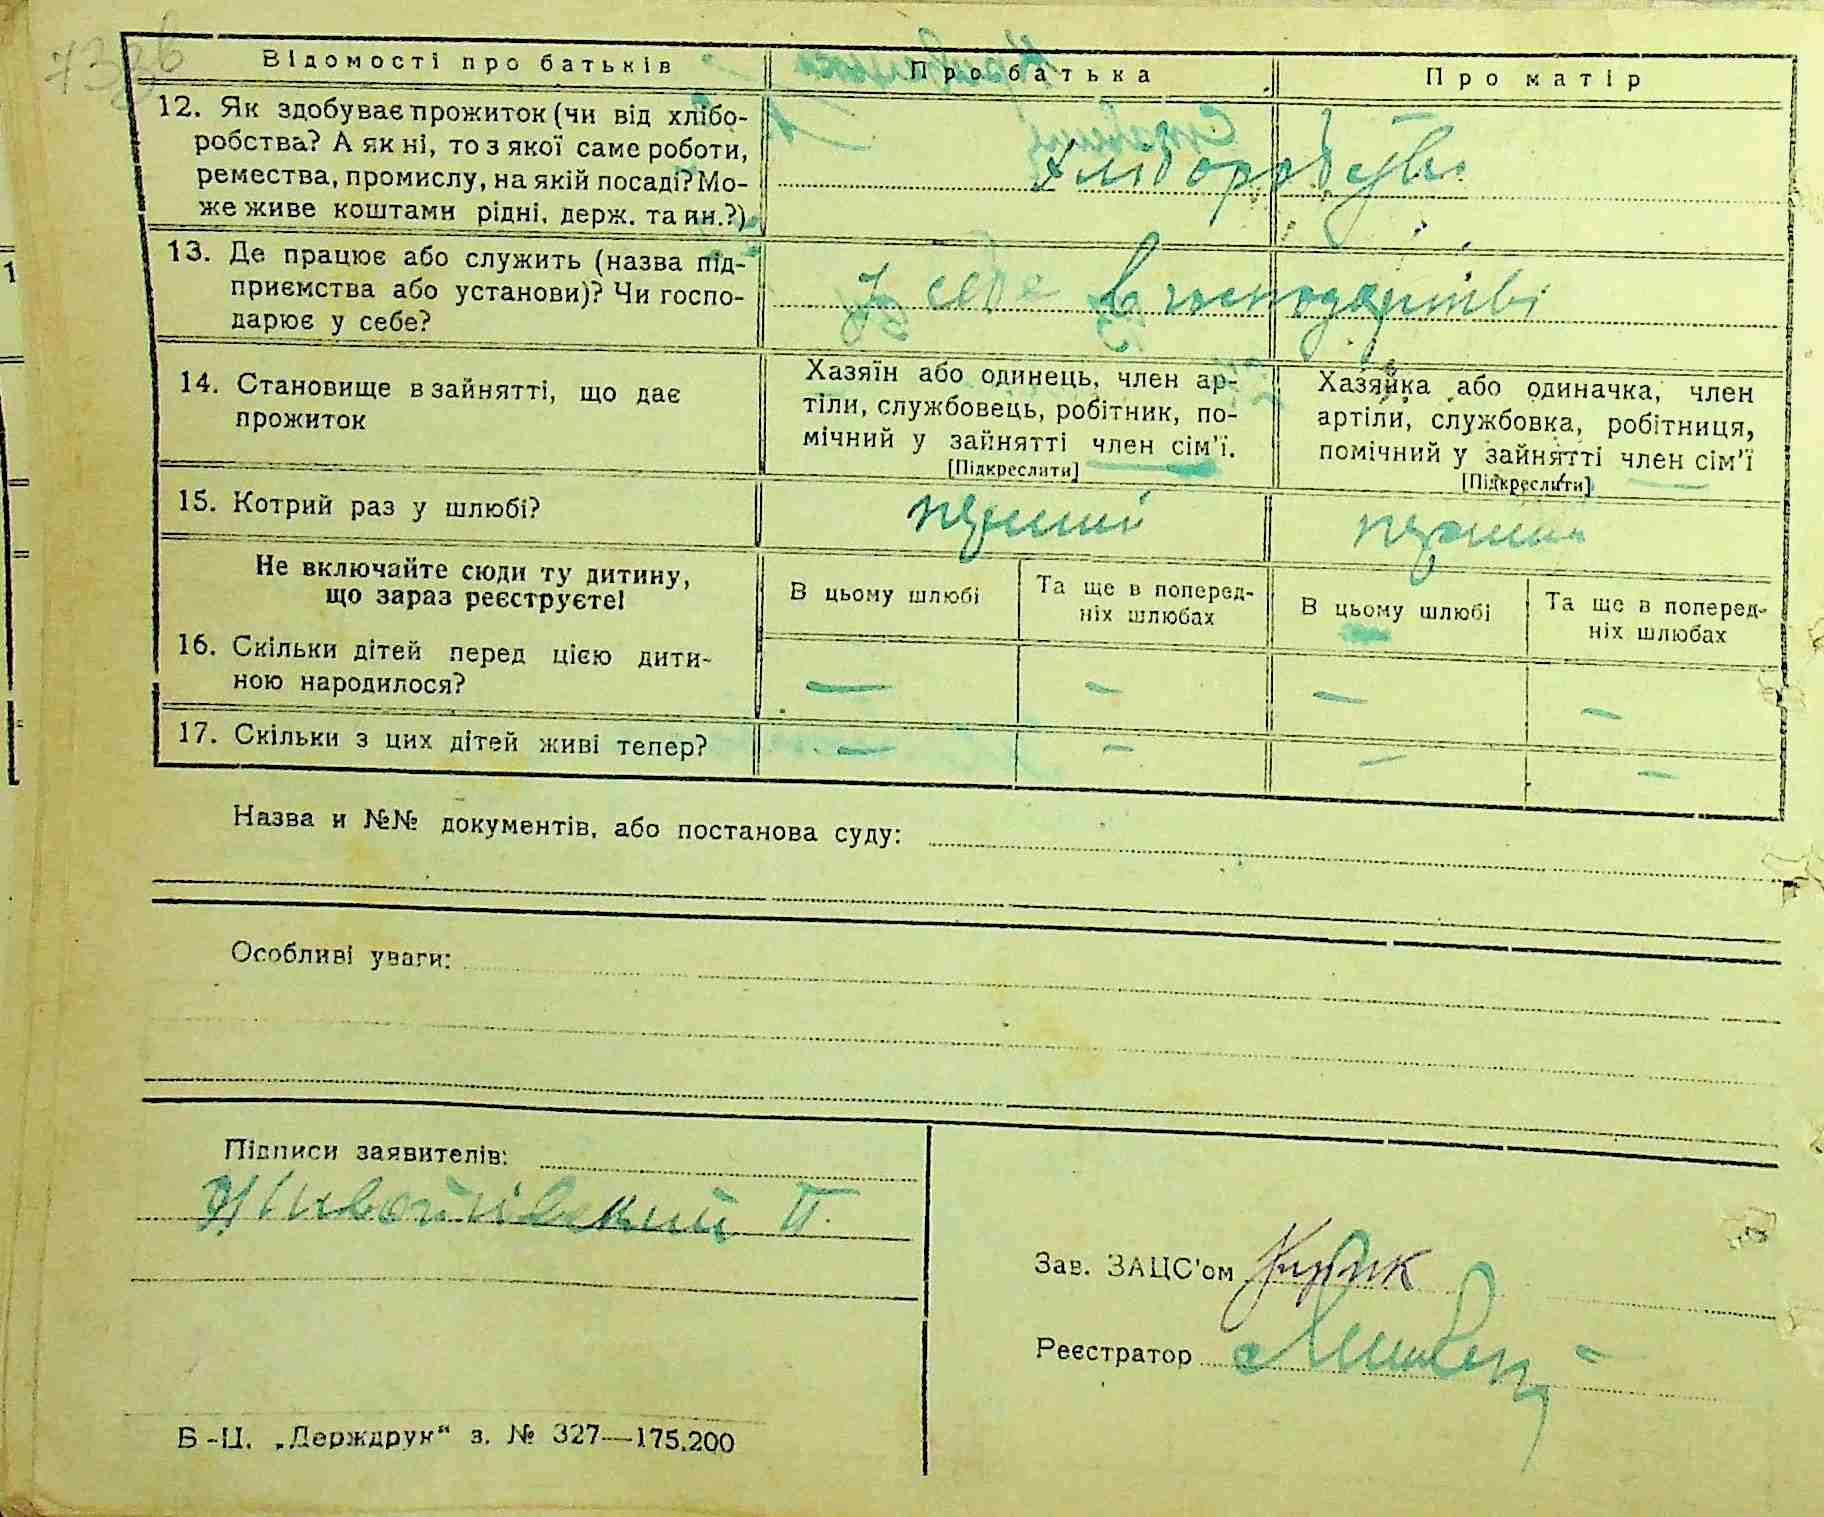 Відомості про батьків Про батька Про матір
12. Як здобуває прожиток (чи від хлібо-
робства? А як ні, то з якої саме роботи,
ремества, промислу, на якій посаді? Мо-
же живе коштами рідні, держ. та ин.?)
Хліборобство
13. Де працює або служить (назва під-
приємства або установи)? Чи госпо-
дарює у себе?
У себе в господарстві
14. Становище в зайнятті, що дає
прожиток
Хазяїн або одинець, член ар-
тіли, службовець, робітник, по-
мічний у зайнятті член сім'ї.
[Підкреслити]
Хазяйка або одиначка, член
артіли, службовка, робітниця,
помічний у зайнятті член сім'ї
[Підкреслити]
15. Котрий раз у шлюбі?
перший
перший
Не включайте сюди ту дитину,
що зараз реєструєте!
В цьому шлюбі
Та ще в поперед-
ніх шлюбах
В цьому шлюбі
Та ще в поперед-
ніх шлюбах
16. Скільки дітей перед цією дити-
ною народилося?
— — — —
17. Скільки з цих дітей живі тепер?
— — — —
Назва и №№ документів, або постанова суду:
Особливі уваги:
Підписи заявителів:
Зав. ЗАЦС'ом
Реєстратор
Б-Ц. „Держдрук“ з. № 327—175.200